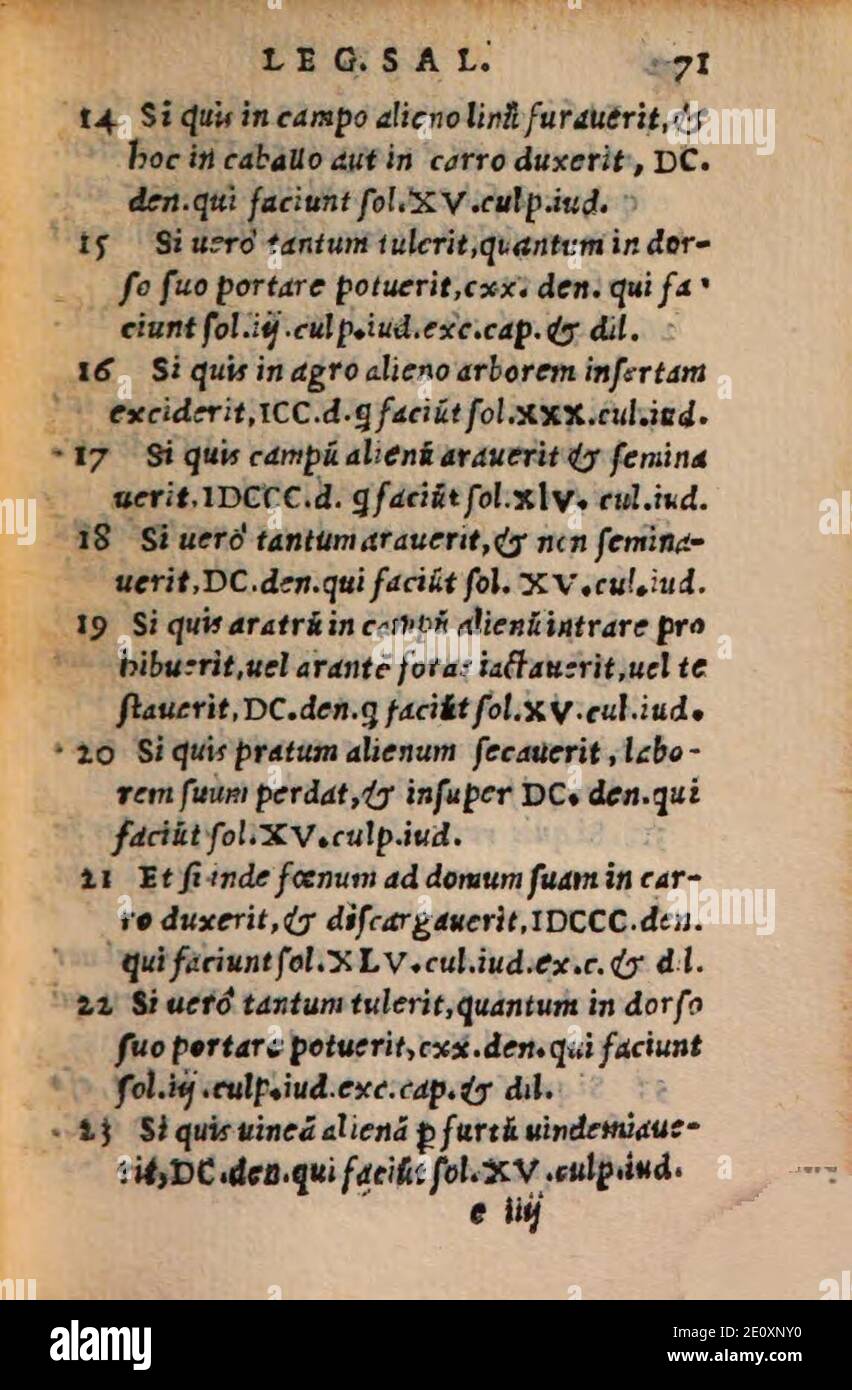 LEG. SAL. 71
14 Si quis in campo alieno linū furauerit, &
hoc in caballo aut in carro duxerit, DC.
den. qui faciunt ſol. XV. culp. iud.
15 Si uerò tantum tulerit, quantum in dor-
ſo ſuo portare potuerit, cxx. den. qui fa
ciunt ſol. iij. culp. iud. exc. cap. & dil.
16 Si quis in agro alieno arborem inſertam
exciderit, ICC. d. q faciūt ſol. XXX. cul. iud.
17 Si quis campū alienū arauerit & ſemina
uerit, IDCCC. d. q faciūt ſol. xlv. cul. iud.
18 Si uerò tantum arauerit, & non ſemina-
uerit, DC. den. qui faciūt ſol. XV. cul. iud.
19 Si quis aratrū in campū alienū intrare pro
hibuerit, uel arantē foras iactauerit, uel te
ſtauerit, DC. den. q faciūt ſol. XV. cul. iud.
20 Si quis pratum alienum ſecauerit, labo-
rem ſuum perdat, & inſuper DC. den. qui
faciūt ſol. XV. culp. iud.
21 Et ſi inde fœnum ad domum ſuam in car-
ro duxerit, & diſcargauerit, IDCCC. den.
qui faciunt ſol. XLV. cul. iud. ex. c. & dil.
22 Si uerò tantum tulerit, quantum in dorſo
ſuo portare potuerit, cxx. den. qui faciunt
ſol. iij. culp. iud. exc. cap. & dil.
23 Si quis uineā alienā ꝑ furtū uindemiaue-
rit, DC. den. qui faciūt ſol. XV. culp. iud.
e iiij
alamy
Image ID: 2E0XNY0
www.alamy.com